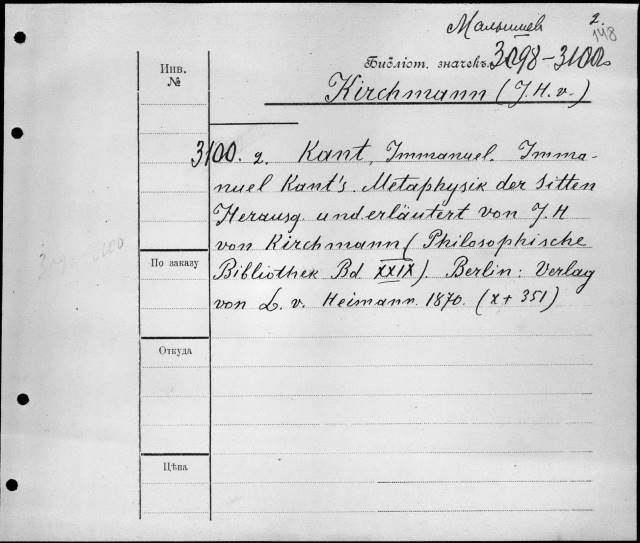 Малышев 2.
148
Библіот. значекъ 3098–3100
Инв.
№
Kirchmann (J. H. v.)
3100. 2. Kant, Immanuel. Imma-
nuel Kant's. Metaphysik der Sitten
Herausg. und erläutert von J. H
von Kirchmann (Philosophische
По заказу
Bibliothek Bd XXIX). Berlin: Verlag
von L. v. Heimann. 1870. (X + 351)
Откуда
Цѣна